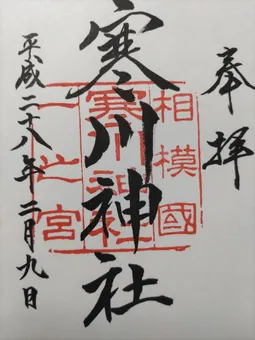 奉拝
寒川神社
平成二十八年二月九日
相模國
寒川神社
一之宮